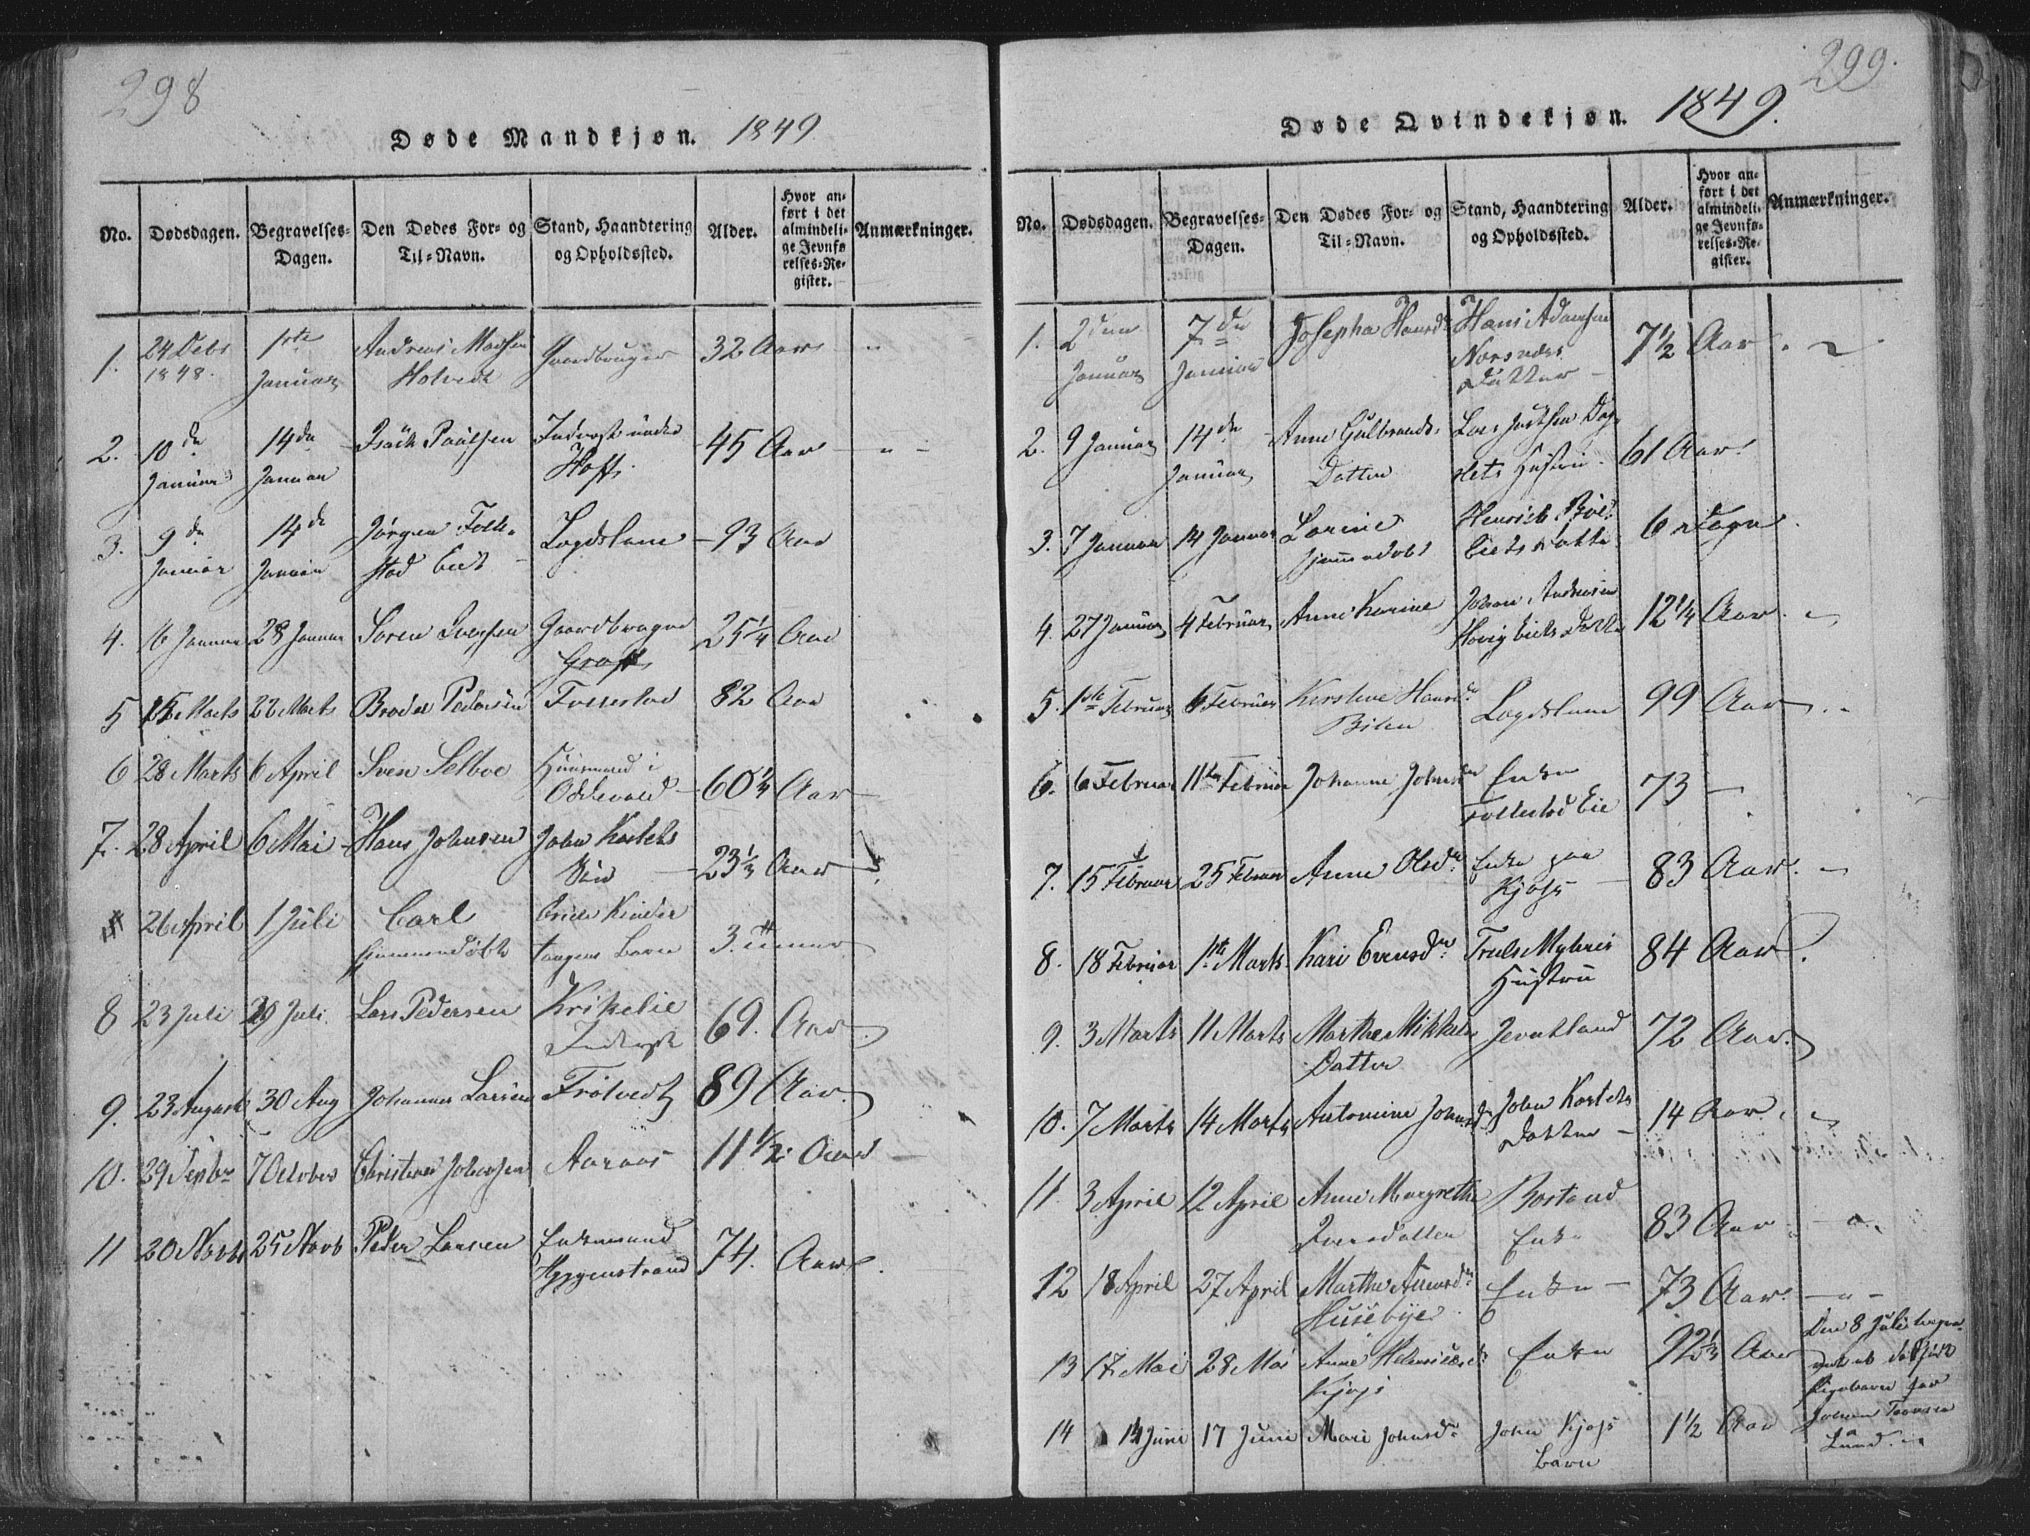 298
Døde Mandkjøn. 1849
No. Dødsdagen. Begravelses-Dagen. Den Dødes For- og Til-Navn. Stand, Haandtering og Opholdssted. Alder. Hvor anført i det almindelige Jevnførelses-Register. Anmærkninger.
1. 24 Debr 1848. 1ste Januar Andreas Holvedt Gaardbruger 32 Aar "
2. 10de Januar 14de Januar Isach Paulsen Inderst under Hoff 45 Aar "
3. 9de Januar 14de Januar Jørgen Follestad Eiet Lægdslem 93 Aar
4. 16 Januar 28 Januar Søren Iversen Gaardbruger 25 1/4 Aar
5 15 Marts 22 Marts Pedersen Follestad 82 Aar
6 28 Marts 6 April Sven Selboe Huusmand i Oddevald 60 1/4 Aar
7. 28 April 6 Mai Hans Johnsen John Søn 23 1/4 Aar
26 April 1 Juli Carl hjemmedøbt Barn 3
8 23 Juli 29 Juli Lars Pedersen Krikelie Inderst 69. Aar
9. 23 August 30 Aug Johannes Larsen Frøtvedt 89 Aar.
10. 29 Septbr 7 October Christian Johansen Aaraas 11 1/2 Aar
11 20 Novb 25 Novb Peder Larsen Enkemand Hyggenstrand 74. Aar
299.
Døde Qvindekjøn. 1849.
No. Dødsdagen. Begravelses-Dagen. Den Dødes For- og Til-Navn. Stand, Haandtering og Opholdssted. Alder. Hvor anført i det almindelige Jevnførelses-Register. Anmærkninger.
1. 2den Januar 7de Januar Josepha Hansdr Hans Adamsen Datter 7 1/2 Aar
2. 9 Januar 14de Januar Anne Gulbrands Datter Lars Hustru 61 Aar
3. 7 Januar 14 Januar Larine hjemmedøbt Henrik 6 Dage
4. 27 Januar 4 Februar Anne Karine Johan Andersen Datter 12 1/4 Aar
5. 1ste Februar 6 Februar Kirstine Hansdr Lægdslem 99 Aar
6. 6 Februar 11te Februar Johanne Johnsdr Enke Follestad Eie 73
7. 15 Februar 25 Februar Anne Olsdr Enke paa Kjøss 83 Aar
8. 18 Februar 1ste Marts Kari Evensdr Truls Myhres Hustru 84 Aar
9. 3 Marts 11 Marts Marthe Mikkels Datter 72 Aar
10. 7 Marts 14 Marts Antonine Johnsdr John Datter 14 Aar
11 3 April 12 April Anne Margrethe Iversdatter Enke 83 Aar
12 18 April 27 April Marthe Husebye Enke 73 Aar
13 17 Mai 28 Mai Anne Kjøss Enke 92 1/4 Aar
Den 8 Juli
Pigebarn for
Lund
14 14 Juni 17 Juni Mari Johnsdr John Kjøss Barn 1 1/2 Aar